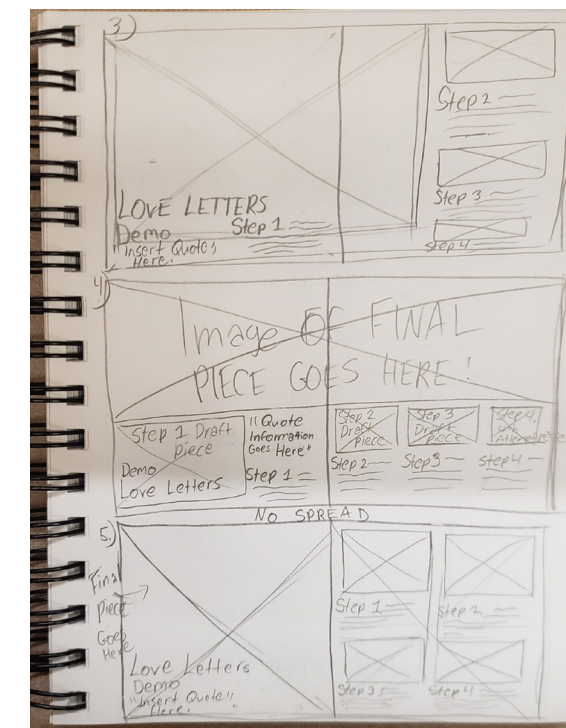 3)
Step 2
Step 3
Step 4
LOVE LETTERS
Demo
Step 1
Insert Quotes
Here.
4)
Image OF FINAL
PIECE GOES HERE!
Step 1 Draft
piece
Demo
Love Letters
"Quote
Information
Goes Here"
Step 1
Step 2
Draft
piece
Step 2
Step 3
Draft
piece
Step 3
Step 4
Step 4
NO SPREAD
5.)
Final
Piece
Goes
Here
Love Letters
Demo
"Insert Quote"
Here.
Step 1
Step 2
Step 3
Step 4